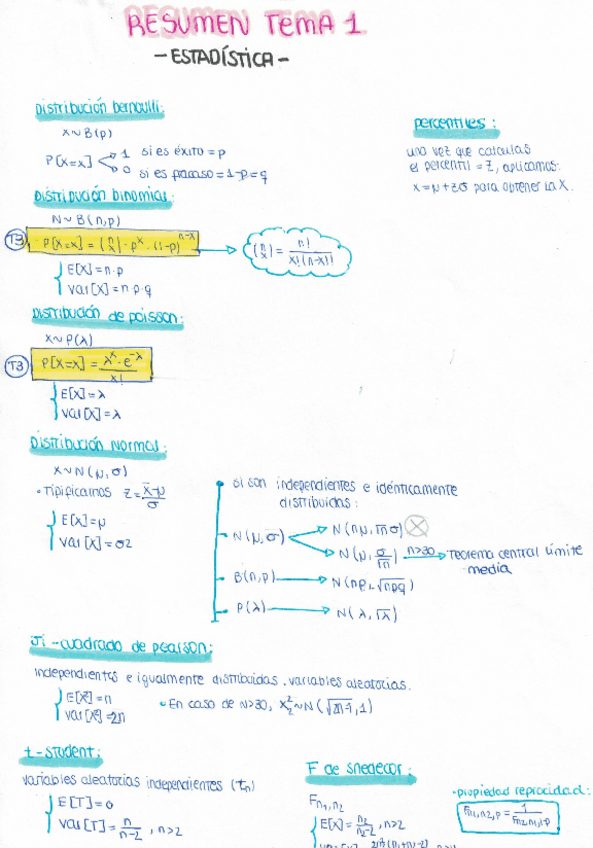 RESUMEN TEMA 1
- ESTADÍSTICA -
Distribución bernoulli:
X~B(p)
P[X=x] 1 si es éxito = p
0 si es fracaso = 1-p = q
percentiles:
una vez que calculas
el percentil = z, aplicamos:
x = μ + zσ para obtener la X.
Distribución binomial:
N~B(n,p)
T3 P[X=x] = (n x) · p^x · (1-p)^n-x → (n x) = n! / x!(n-x)!
E[X] = n·p
Var[X] = n·p·q
Distribución de poisson:
X~P(λ)
T3 P[X=x] = λ^x · e^-λ / x!
E[X] = λ
Var[X] = λ
Distribución Normal:
X~N(μ,σ)
• Tipificamos z = x-μ / σ
E[X] = μ
Var[X] = σ2
Si son independientes e idénticamente
distribuidas:
N(μ,σ) → N(nμ, √nσ)
→ N(μ, σ/√n) n>30 → Teorema central límite
media
B(n,p) → N(np, √npq)
P(λ) → N(λ, √λ)
Ji-cuadrado de pearson:
independientes e igualmente distribuidas. variables aleatorias.
E[X²] = n
Var[X²] = 2n
• En caso de N>30, X²~N(√2n-1, 1)
t-student:
variables aleatorias independientes (tn)
E[T] = 0
Var[T] = n / n-2, n>2
F de snedecor:
Fn1,n2
E[X] = n2 / n2-2, n>2
• propiedad reprocidad:
Fn1,n2,p = 1 / Fn2,n1,1-p